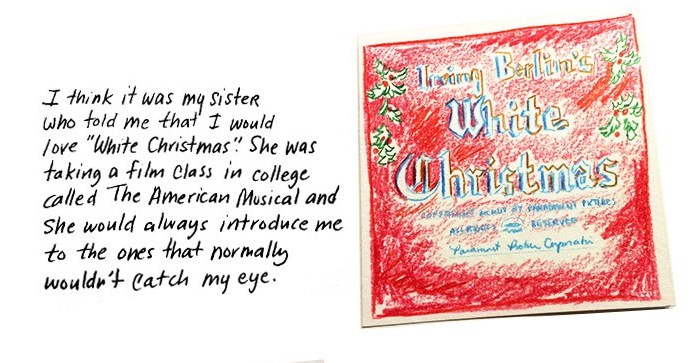 I think it was my sister
who told me that I would
love "White Christmas". She was
taking a film class in college
called The American Musical and
she would always introduce me
to the ones that normally
wouldn't catch my eye.
Irving Berlin's
White
Christmas
BY PARAMOUNT PICTURES
ALL RIGHTS RESERVED
Paramount Pictures Corporation